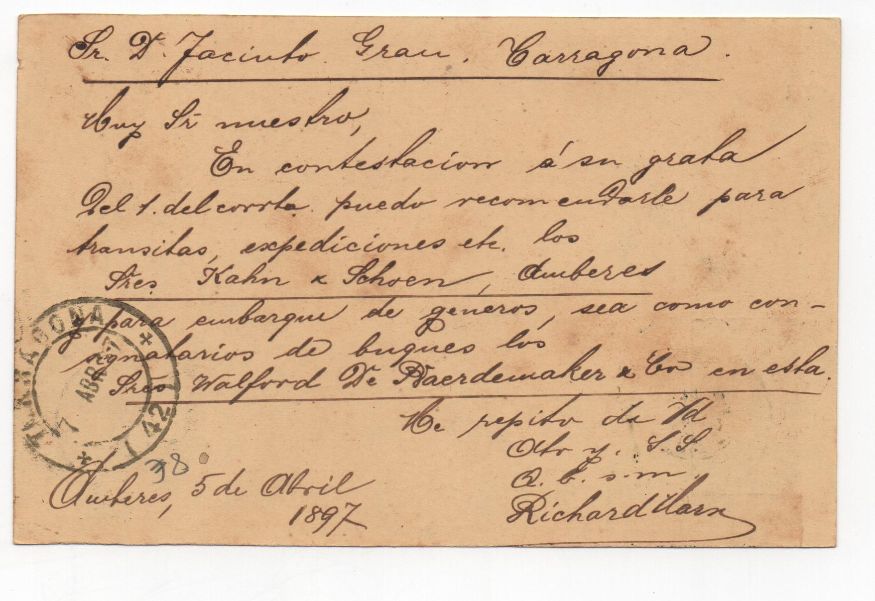 Sr. D. Jacinto Grau. Tarragona.
Muy Sr nuestro,
En contestacion á su grata
del 1. del corrte. puedo recomendarle para
transitas, expediciones etc. los
Sres Kahn & Schoen, Amberes
y para embarque de generos, sea como con-
signatarios de buques los
Sres Walford De Baerdemaker & Co en esta.
Me repito de Vd
Ato y. S. S.
Q. b. s. m.
Richard Marx
Amberes, 5 de Abril
1897
TARRAGONA
ABR
142
38